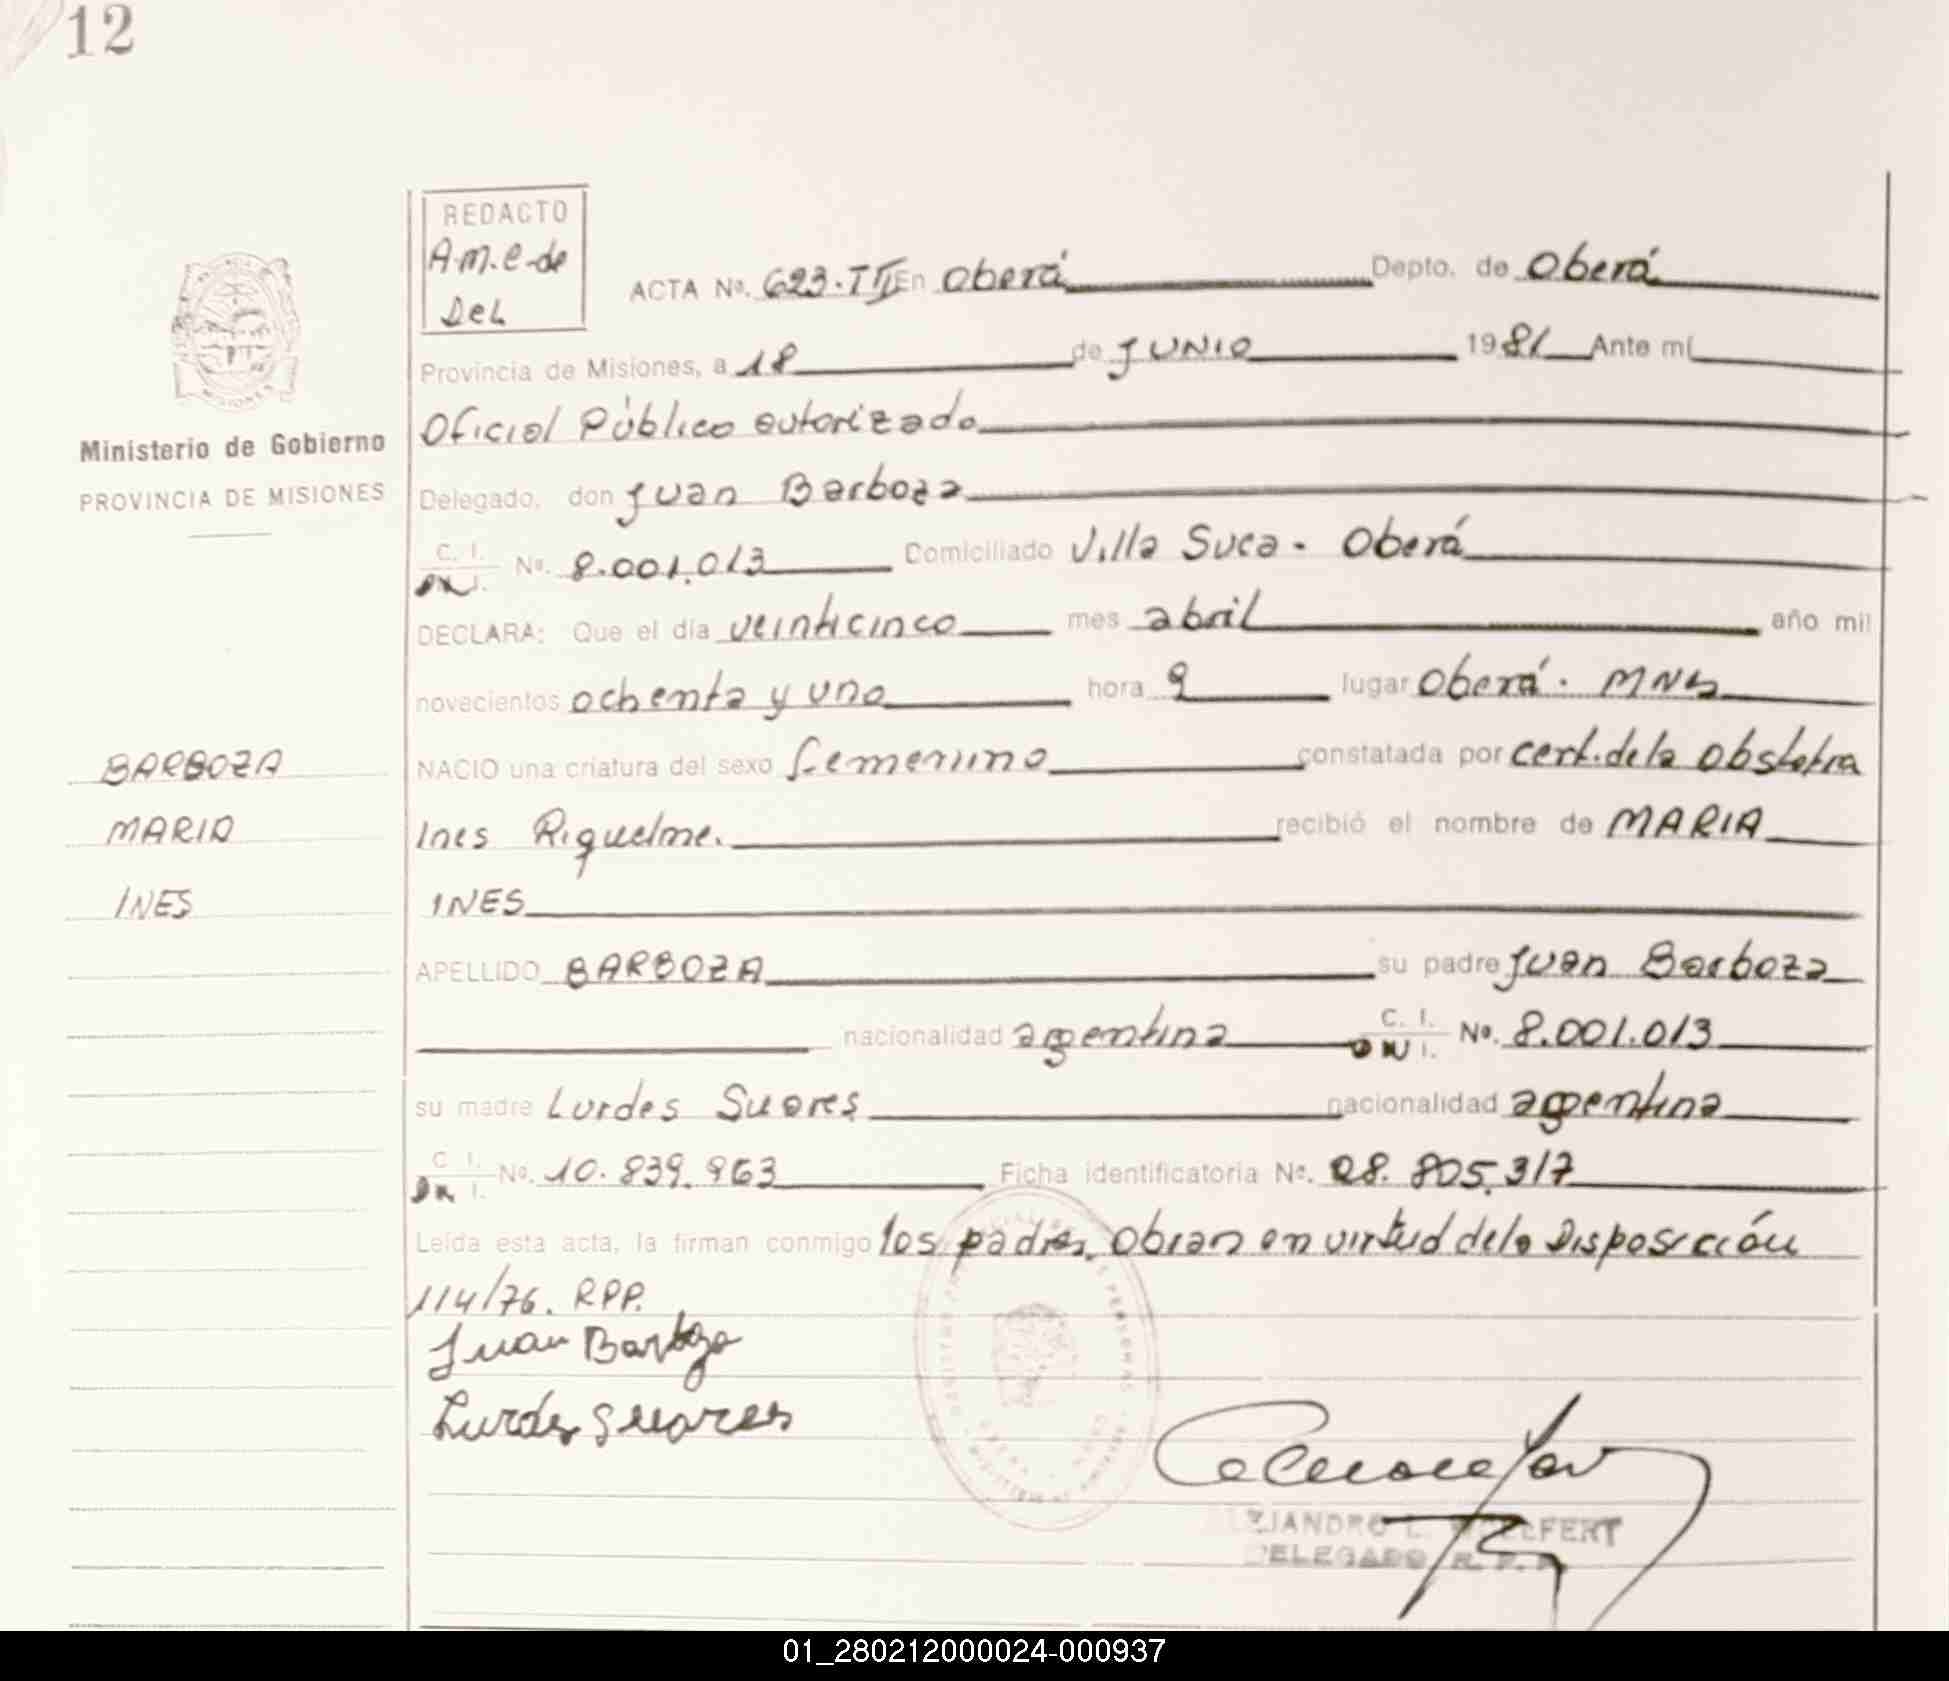 12
REDACTO
A.M.C. de
Del
ACTA No. 623.TII En Oberá Depto. de Oberá
Provincia de Misiones, a 18 de JUNIO 1981 Ante mí
Oficial Público autorizado
Ministerio de Gobierno
PROVINCIA DE MISIONES
MISIONES
Delegado, don Juan Barboza
C. I. No. 8.001.013 Domiciliado Villa Suca - Oberá
DECLARA: Que el día veinticinco mes abril año mil
novecientos ochenta y uno hora 9 lugar Oberá. MNS
NACIO una criatura del sexo femenino constatada por cert. de la obstetra
Ines Riquelme. recibió el nombre de MARIA
INES
BARBOZA
MARIA
INES
APELLIDO BARBOZA su padre Juan Barboza
nacionalidad argentina C. I. No. 8.001.013
su madre Lurdes Suares nacionalidad argentina
C. I. No. 10.839.963 Ficha identificatoria No. 28.805.317
Leída esta acta, la firman conmigo los padres, obran en virtud de la Disposición
114/76. RPP.
Juan Barboza
Lurdes Suares
DELEGADO R. P. P.
01_280212000024-000937